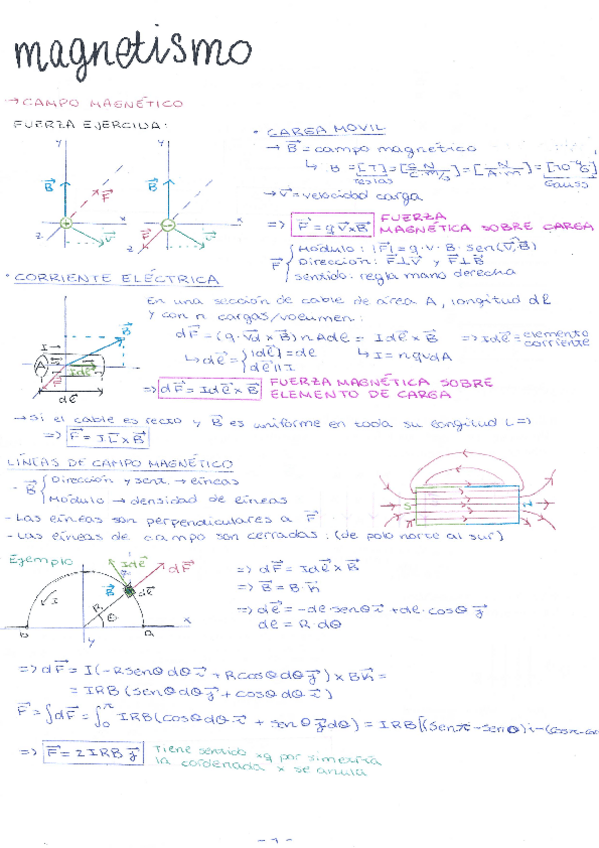 magnetismo
→ CAMPO MAGNÉTICO
FUERZA EJERCIDA:
• CARGA MOVIL
→ B⃗ = campo magnético
↳ B = [T] = [N / C·m/s] = [N / A·m] = [10⁴ G]
teslas
Gauss
→ v⃗ = velocidad carga
=> F⃗ = q v⃗ x B⃗ FUERZA MAGNÉTICA SOBRE CARGA
F⃗ { Módulo: |F⃗| = q · v · B · sen(v⃗,B⃗)
Dirección: F⃗⊥v⃗ y F⃗⊥B⃗
sentido: regla mano derecha
y
B⃗
F⃗
x
z
v⃗
+
y
B⃗
F⃗
x
z
v⃗
-
• CORRIENTE ELÉCTRICA
En una sección de cable de área A, longitud dl
y con n cargas/volumen:
dF⃗ = (q · v⃗d x B⃗) n A dl = I dl⃗ x B⃗ => I dl⃗ = elemento corriente
↳ dl⃗ = { |dl⃗| = dl
dl⃗ // I
↳ I = n q vd A
=> dF⃗ = I dl⃗ x B⃗ FUERZA MAGNÉTICA SOBRE ELEMENTO DE CARGA
I
A
B⃗
I dl⃗
F⃗
dl⃗
→ Si el cable es recto y B⃗ es uniforme en toda su longitud L =>
=> F⃗ = I · L⃗ x B⃗
LÍNEAS DE CAMPO MAGNÉTICO
• B⃗ { Dirección y sent. → líneas
Módulo → densidad de líneas
- Las líneas son perpendiculares a F⃗
- Las líneas de campo son cerradas: (de polo norte al sur)
S
N
Ejemplo
I dl⃗
dF⃗
B⃗
dl⃗
I
R
θ
x
y
=> dF⃗ = I dl⃗ x B⃗
=> B⃗ = B · k⃗
=> dl⃗ = -dl senθ i⃗ + dl · cosθ j⃗
dl = R · dθ
=> dF⃗ = I(-R senθ dθ i⃗ + R cosθ dθ j⃗) x B k⃗ =
= IRB (senθ dθ j⃗ + cosθ dθ i⃗)
F⃗ = ∫dF⃗ = ∫₀^π IRB(cosθ dθ i⃗ + senθ j⃗ dθ) = IRB[(senπ - sen0) i - (cosπ - cos
=> F⃗ = 2IRB j⃗ Tiene sentido xq por simetría
la coordenada x se anula
- 1 -